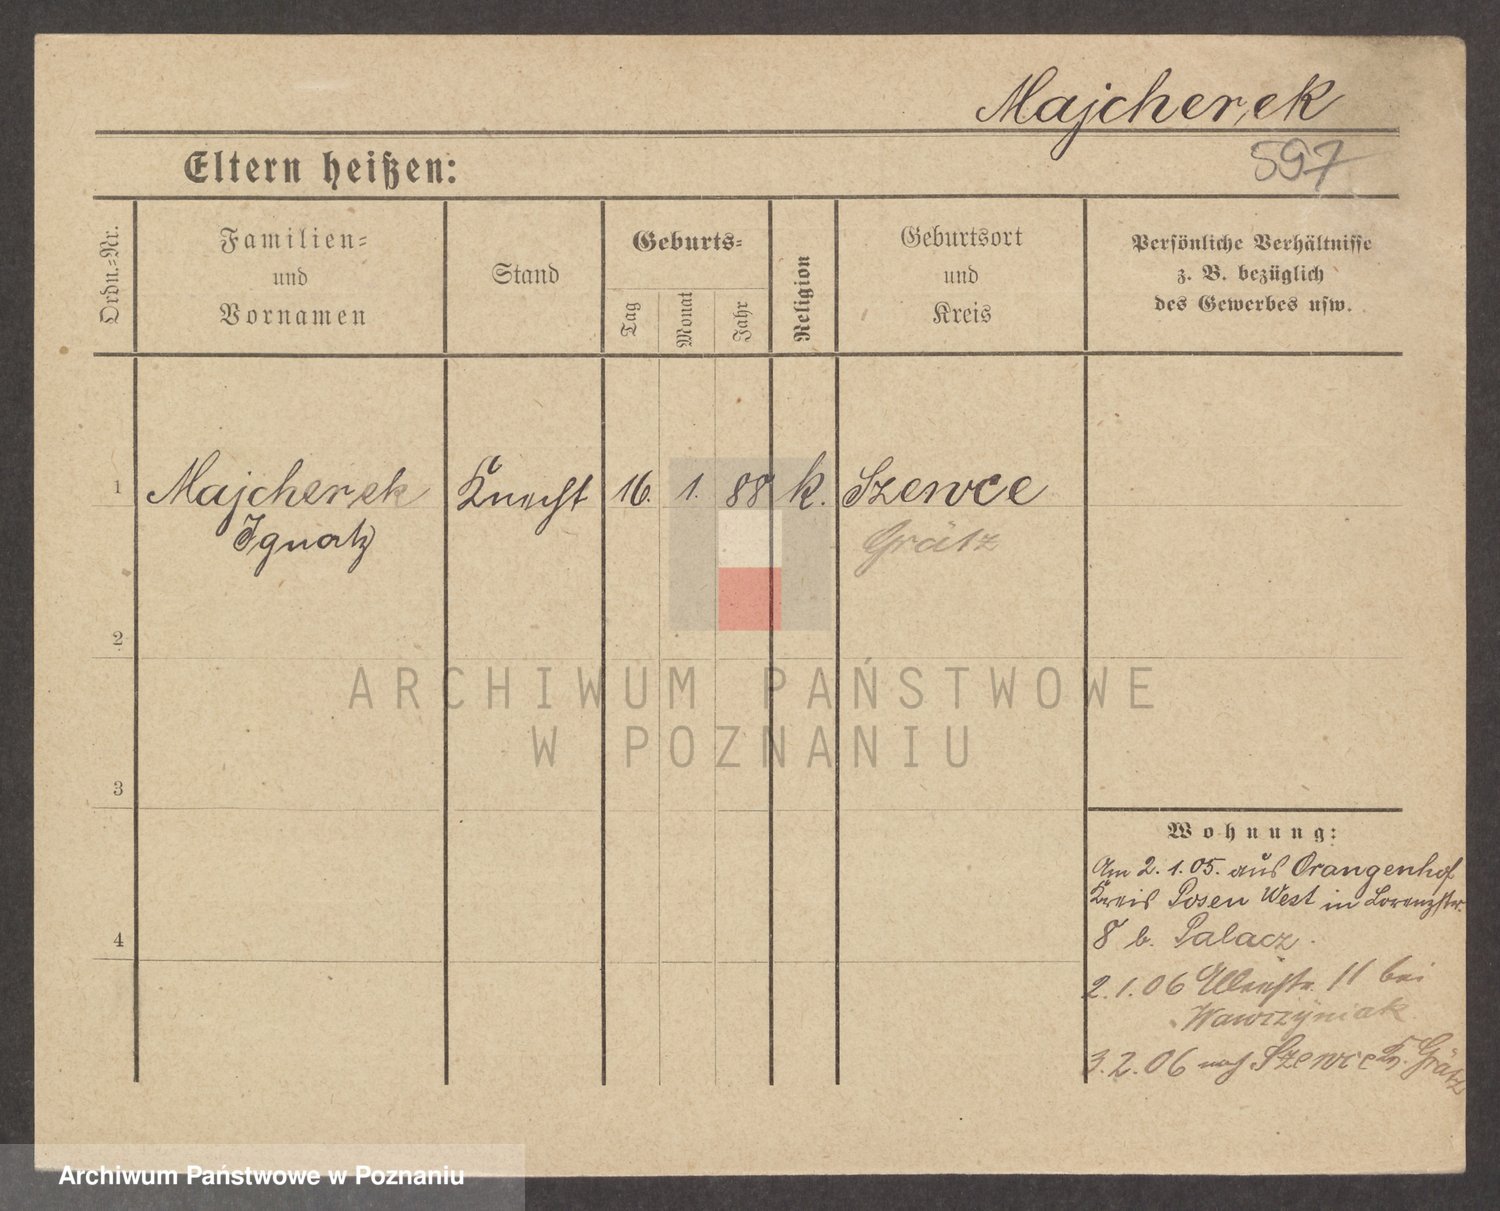 Majcherek
597
Eltern heißen:
Ordn.-Nr.
Familien-
und
Vornamen
Stand
Geburts-
Tag
Monat
Jahr
Religion
Geburtsort
und
Kreis
Persönliche Verhältnisse
z. B. bezüglich
des Gewerbes usw.
1 Majcherek Knecht 16. 1. 88 k. Szewce
Ignatz Grätz
2
ARCHIWUM PAŃSTWOWE
W POZNANIU
3
Wohnung:
Am 2.1.05. aus Orangenhof
Kreis Posen West in Lorenzstr.
8 b. Palacz.
4
2.1.06 11 bei
Wawrzyniak
3.2.06 nach Szewce K. Grätz
Archiwum Państwowe w Poznaniu